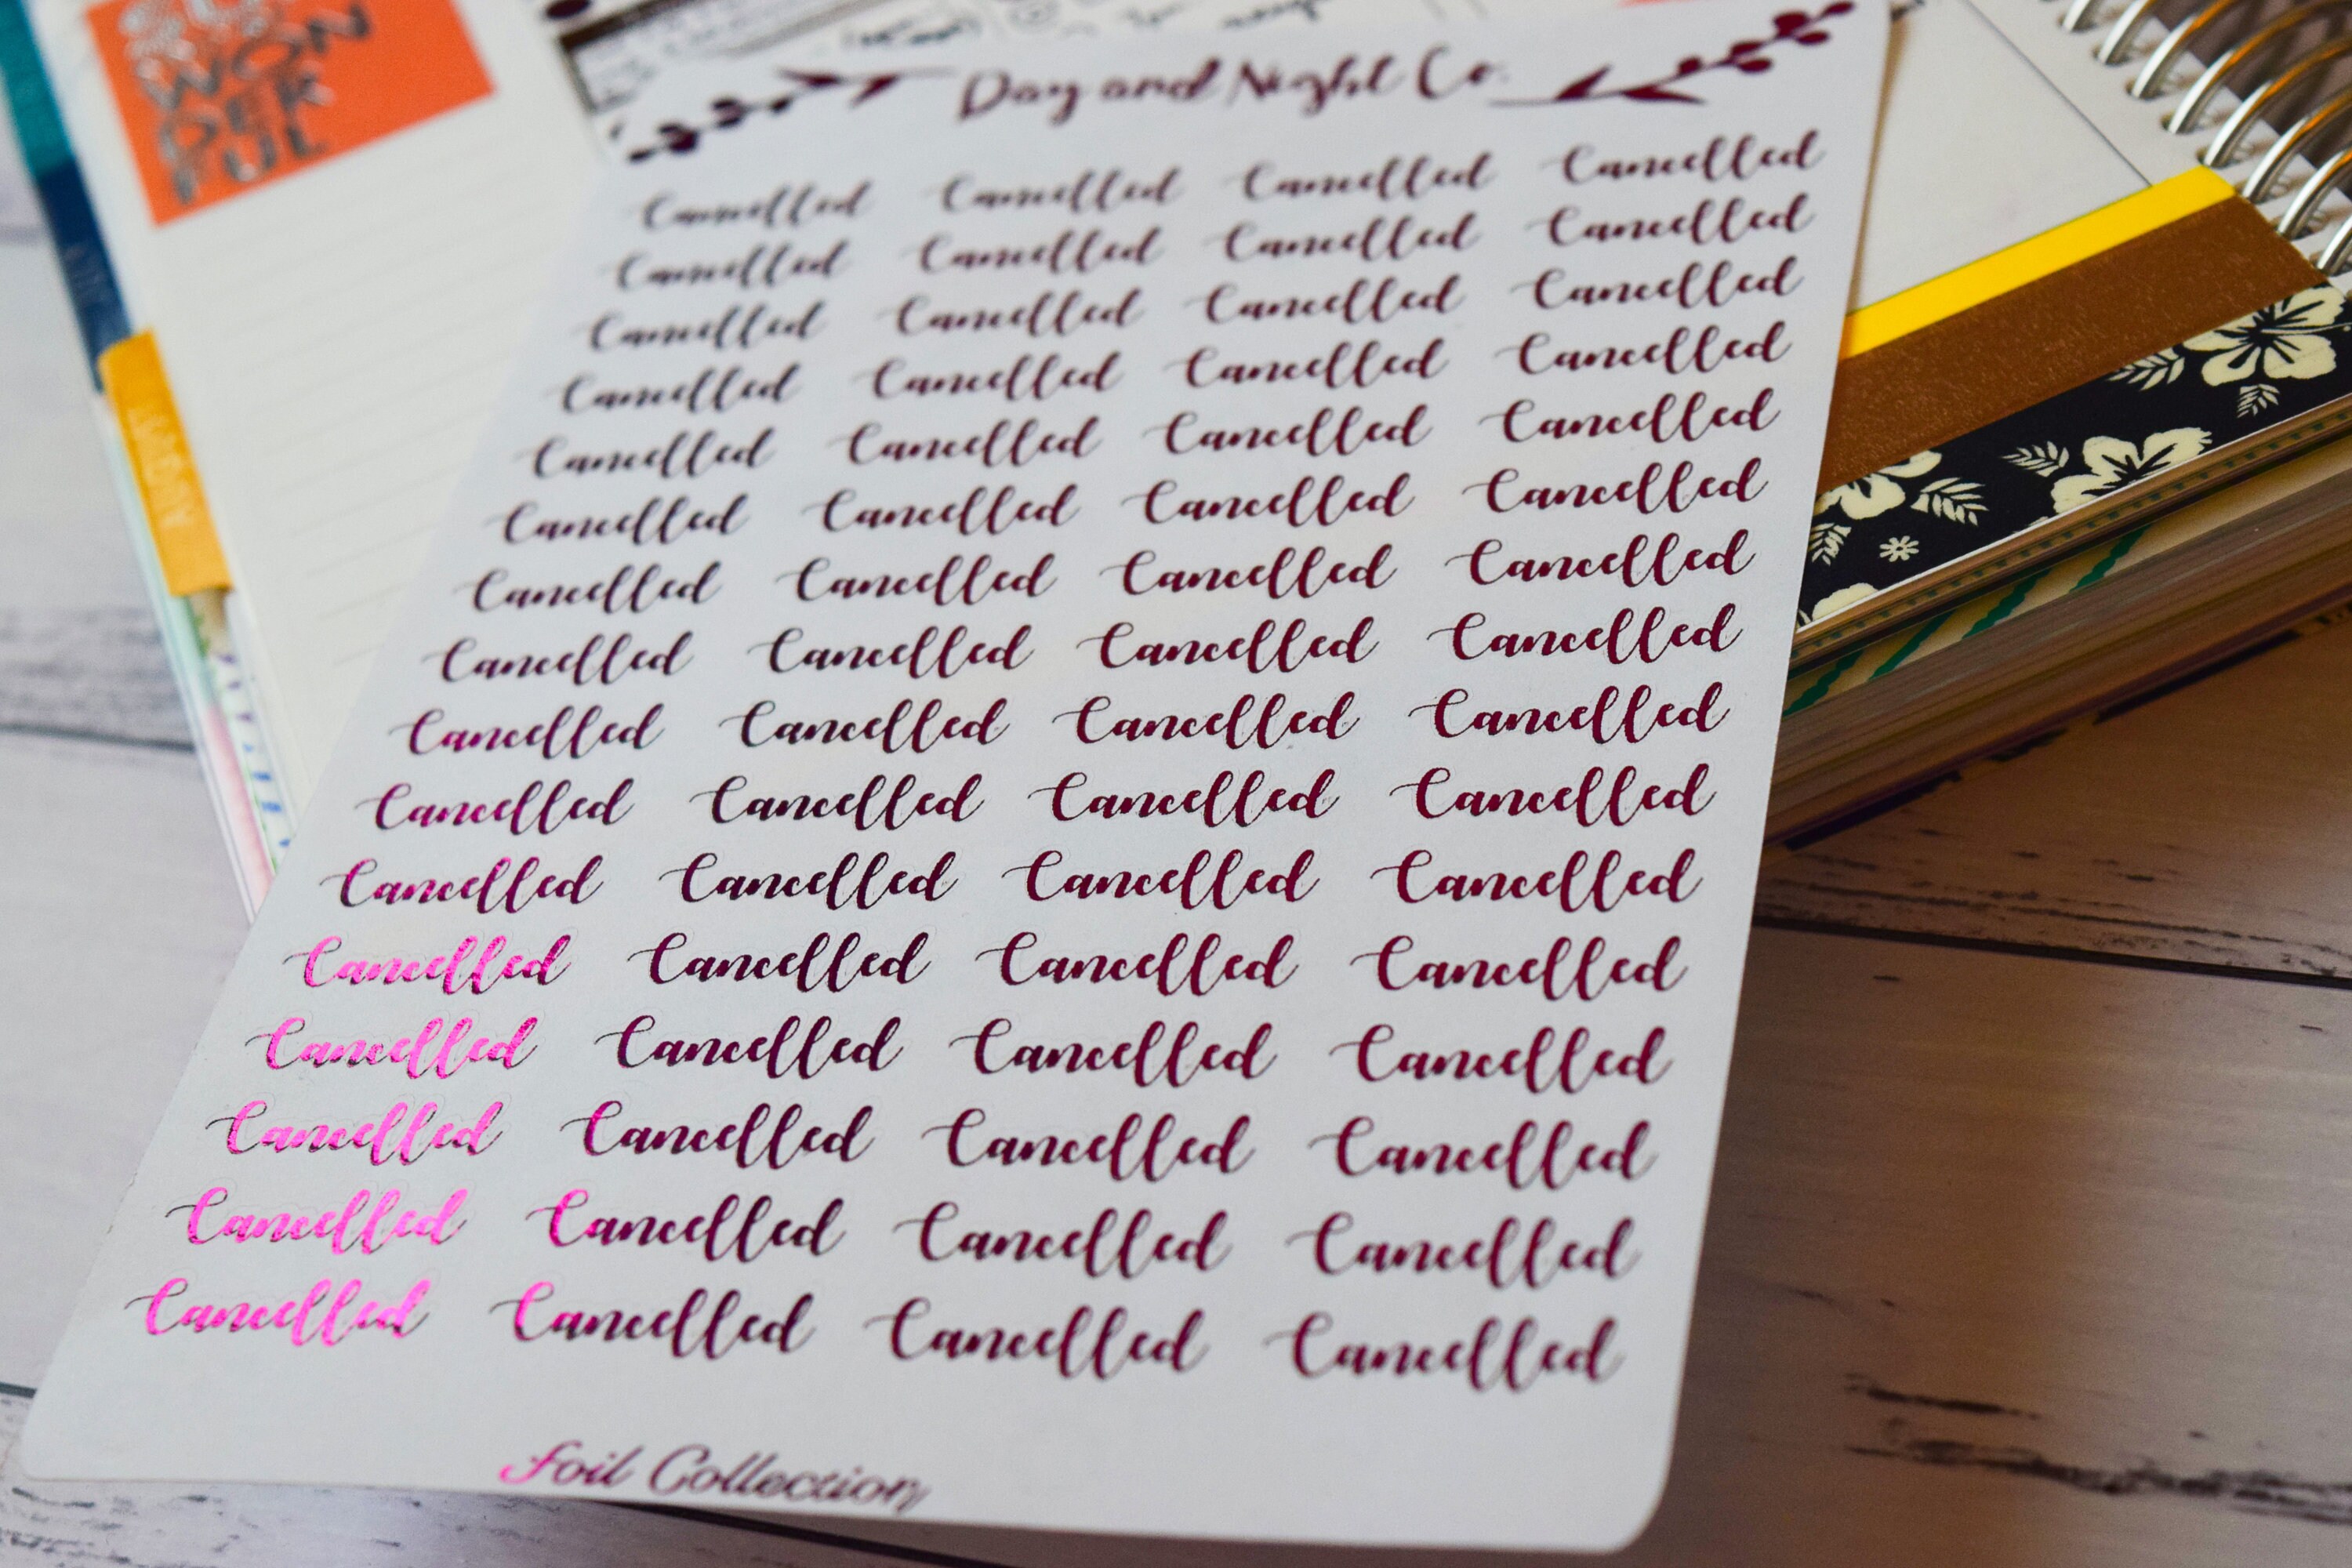 WON
DER
FUL
Day and Night Co.
Cancelled Cancelled Cancelled Cancelled
Cancelled Cancelled Cancelled Cancelled
Cancelled Cancelled Cancelled Cancelled
Cancelled Cancelled Cancelled Cancelled
Cancelled Cancelled Cancelled Cancelled
Cancelled Cancelled Cancelled Cancelled
Cancelled Cancelled Cancelled Cancelled
Cancelled Cancelled Cancelled Cancelled
Cancelled Cancelled Cancelled Cancelled
Cancelled Cancelled Cancelled Cancelled
Cancelled Cancelled Cancelled Cancelled
Cancelled Cancelled Cancelled Cancelled
Cancelled Cancelled Cancelled Cancelled
Cancelled Cancelled Cancelled Cancelled
Cancelled Cancelled Cancelled Cancelled
Cancelled Cancelled Cancelled Cancelled
Foil Collection